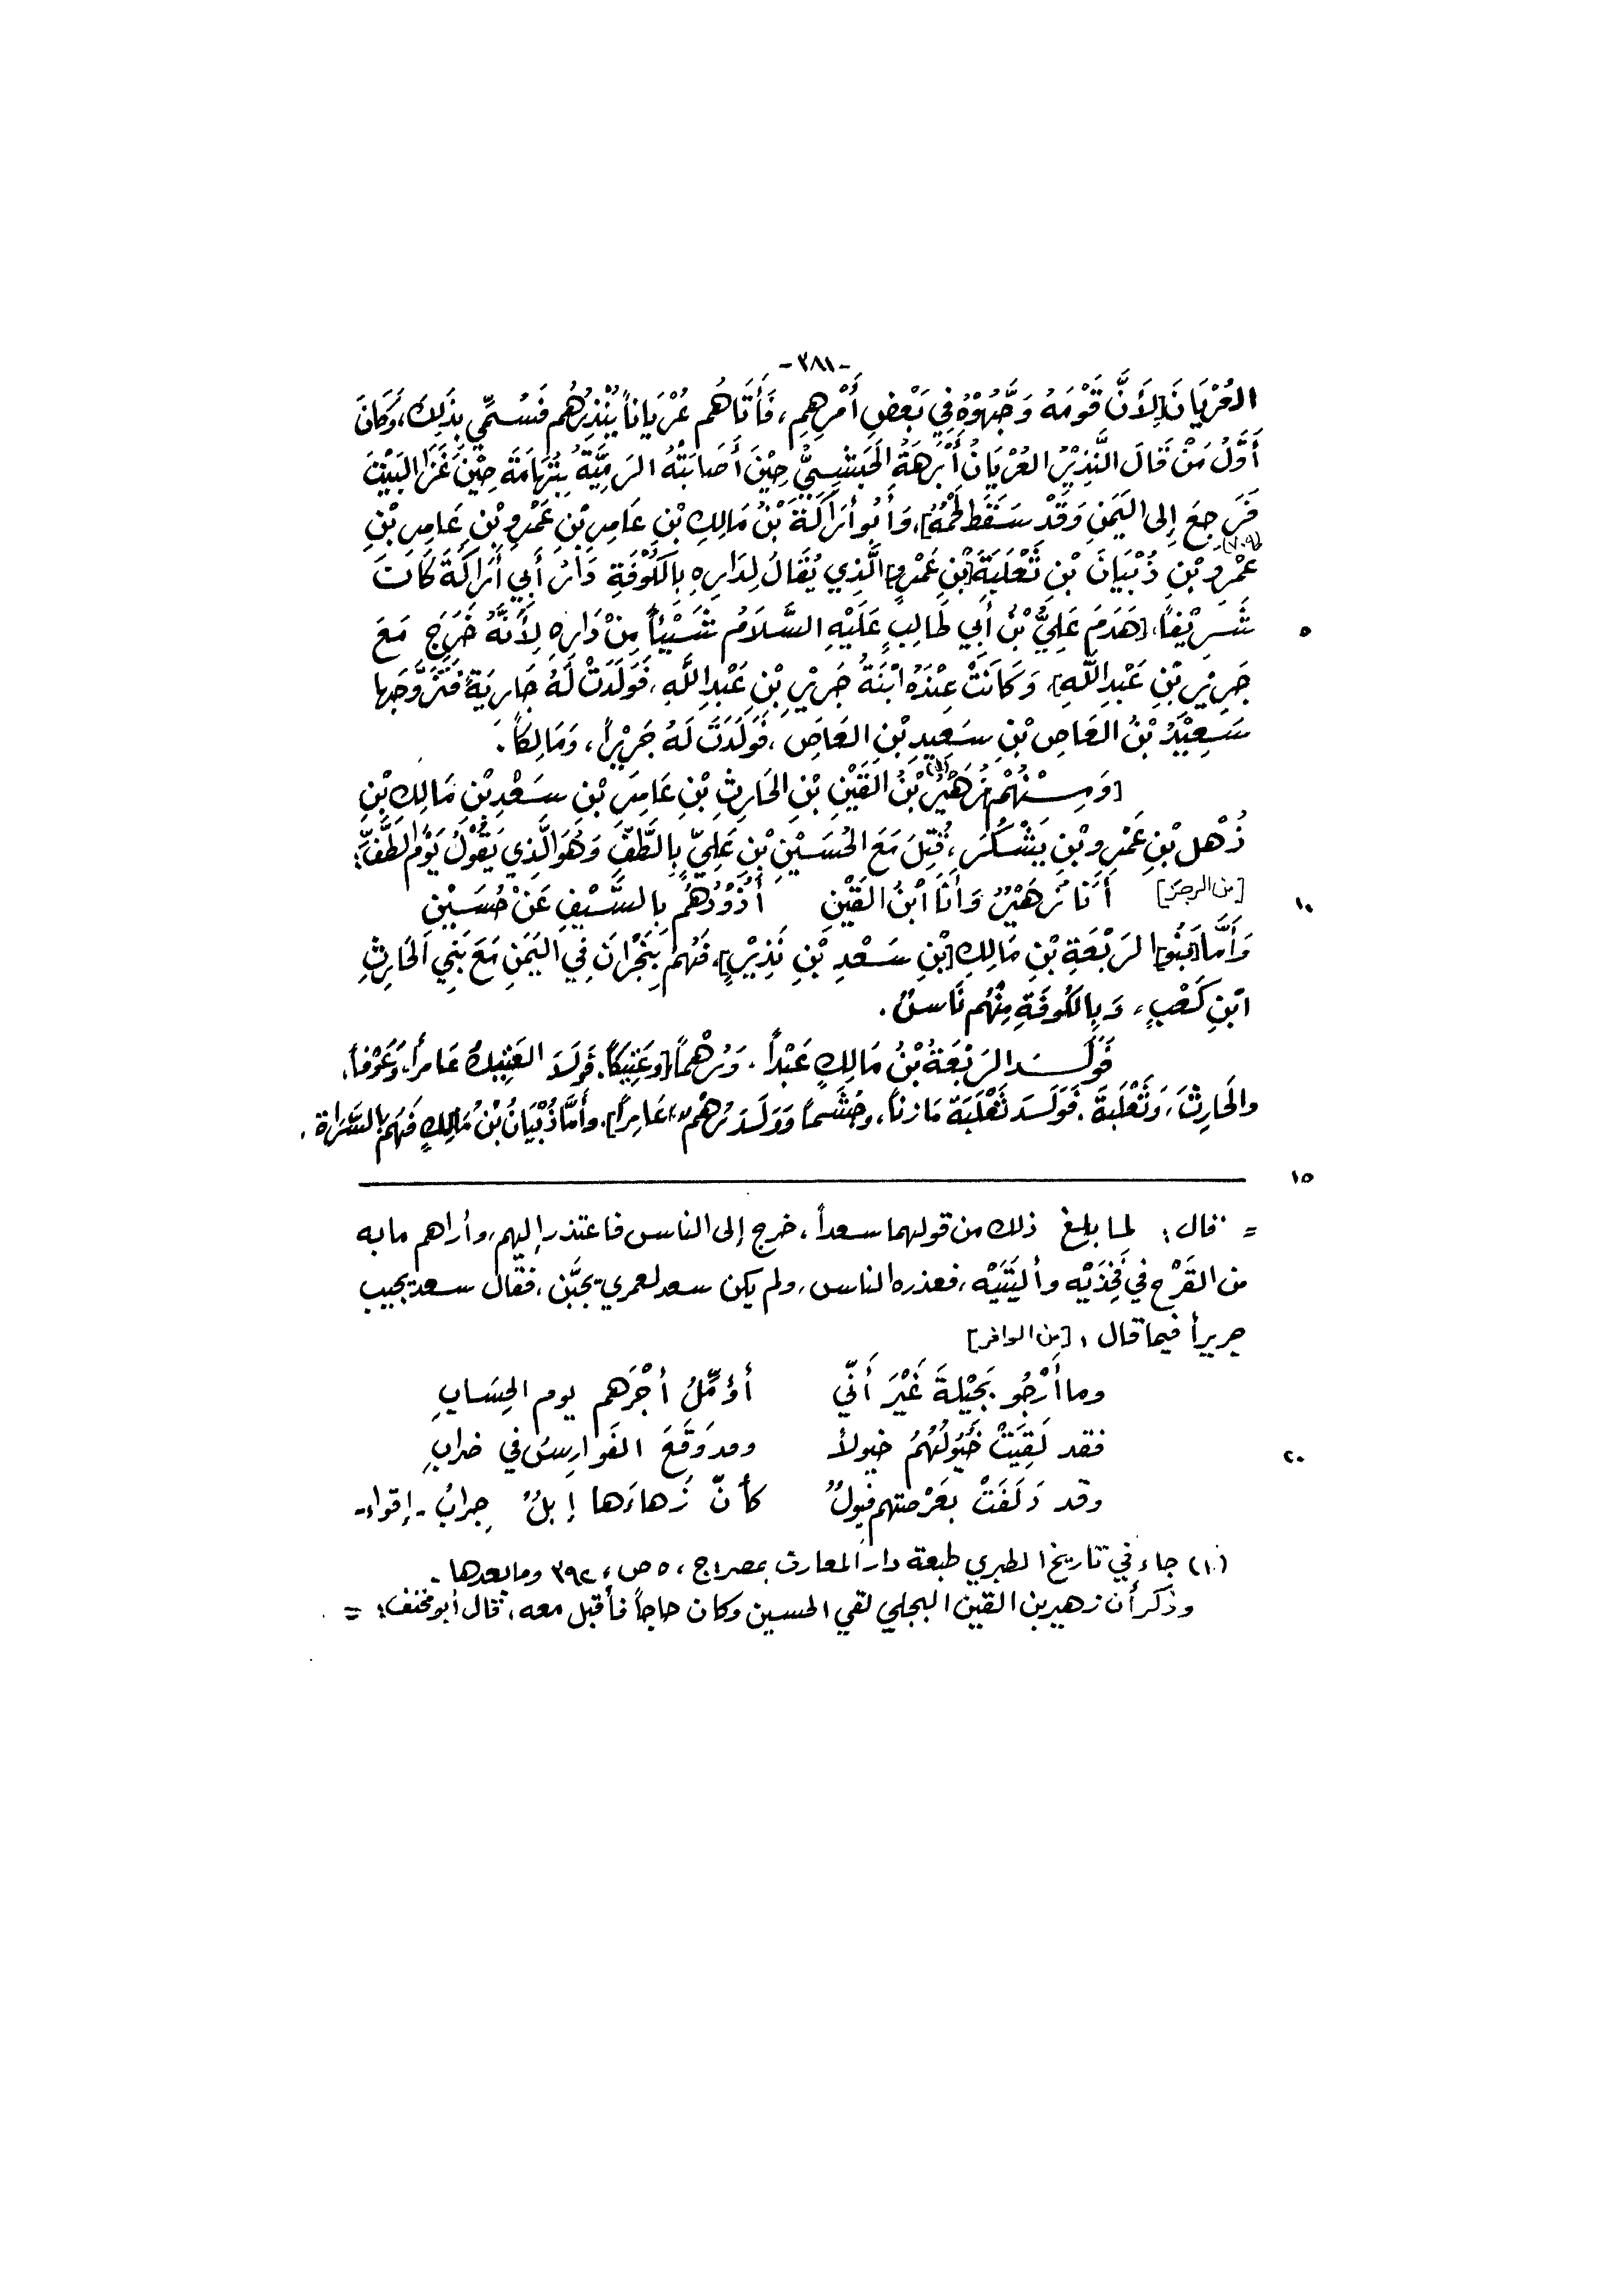 -٣٨١-
العُرْيَانَ[لِأَنَّ قَوْمَهُ وَجَّهُوْهُ فِي بَعْضِ أَمْرِهِم، فَأَتَاهُم عُرْيَاناً يُنْذِرُهُم فَسُمِّي بِذَلِكَ، وَكَانَ
أَوَّلُ مَنْ قَالَ النَّذِيْرُ العُرْيَانُ أَبْرَهَةُ الحَبَشِيُّ حِيْنَ أَصَابَتْهُ الرَمِيَّةُ بِتُهَامَةَ حِيْنَ غَزَا البَيْتَ
فَرَجِعَ إِلى اليَمَنِ وَقَدْ سَقَطَ لَحْمُهُ]، وَأَبُو أَرَاكَةَ بْنُ مَالِكِ بْنِ عَامِرِ بْنِ عَمْرِو بْنِ عَامِرِ بْنِ
عَمْرِو بْنِ ذُبْيَانَ بْنِ ثَعْلَبَةَ[بْنِ عَمْرٍو] الَّذِي يُقَالُ لِدَارِهِ بِالكُوْفَةِ دَارُ أَبِي أَرَاكَةَ كَانَ
[٧٠٩]
شَرِيْفاً، [هَدَمَ عَلِيُّ بْنُ أَبِي طَالِبٍ عَلَيْهِ السَّلَامُ شَيْئاً مِنْ دَارِهِ لِأَنَّهُ خَرَجَ مَعَ
٥
جَرِيْرِ بْنِ عَبْدِ اللَّهِ]، وَكَانَتْ عِنْدَهُ ابْنَةُ جَرِيْرِ بْنِ عَبْدِ اللَّهِ، فَوَلَدَتْ لَهُ جَارِيَةً، فَتَزَوَّجَهَا
سَعِيْدُ بْنُ العَاصِ بْنِ سَعِيدِ بْنِ العَاصِ، فَوَلَدَتْ لَهُ جَرِيْراً، وَمَالِكاً.
[وَمِنْهُمْ] زُهَيْرُ (١) بْنُ القَيْنِ بْنِ الحَارِثِ بْنِ عَامِرِ بْنِ سَعْدِ بْنِ مَالِكِ بْنِ
ذُهْلِ بْنِ عَمْرِو بْنِ يَشْكُرَ، قُتِلَ مَعَ الحُسَيْنِ بْنِ عَلِيٍّ بِالطَّفِّ وَهُوَ الَّذِي يَقُوْلُ يَوْمَ الطَّفِّ:
[من الرجز] أَنَا زُهَيْرٌ وَأَنَا ابْنُ القَيْنِ أَذُوْدُهُمْ بِالسَّيْفِ عَنْ حُسَيْنِ
١٠
وَأَمَّا [بَنُو] الرَبْعَةِ بْنِ مَالِكِ [بْنِ سَعْدِ بْنِ نَذِيْرٍ]، فَهُمْ بِنَجْرَانَ فِي اليَمَنِ مَعَ بَنِي الحَارِثِ
ابْنِ كَعْبٍ، وَبِالكُوفَةِ مِنْهُم نَاسٌ.
فَوَلَدَ الرَبْعَةُ بْنُ مَالِكٍ عَبْداً، وَرُهْماً[وعَتِيْكاً. فَوَلَدَ العَتِيكُ عَامراً، وَعَوْفاً،
والحَارِثَ، وَثَعْلَبةَ. فَوَلَدَ ثَعْلَبَةُ مَازناً، وجُشَماً وَوَلَدَ رُهْمٌ عَامِراً]. وأَمَّا ذُبْيَانُ بْنُ مَالِكٍ فَهُم بِالسَّرَاة.
١٥
= قال: لما بلغ ذلك من قولهما سعداً، خرج إلى الناس فاعتذر إليهم، وأراهم ما به
من القَرْح في فَخِذَيْه وأليَتَيْه، فعذره الناس، ولم يكن سعد لعمري يجبَّن، فقال سعد يجيب
جريراً فيما قال: [من الوافر]
وما أَرْجُو بَجِيْلةَ غَيْرَ أَنِّي أؤمِّلُ أجْرَهم يوم الحِسَابِ
فقد لَقِيَتْ خُيُولُهُمُ خيولاً وقد وَقَعَ الفَوارِسُ في ضرابِ
٢٠
وقد دَلَفَتْ بعَرْصتهم فيولٌ كأنّ زُهاءَها إبلٌ جرابُ -إقواء-
(١) جاء في تاريخ الطبري طبعة دار المعارف بمصر ج، ٥ ص، ٣٩٢ وما بعدها.
وذكر أن زهير بن القين البجلي لقي الحسين وكان حاجاً فأقبل معه، قال أبو مخنف: =